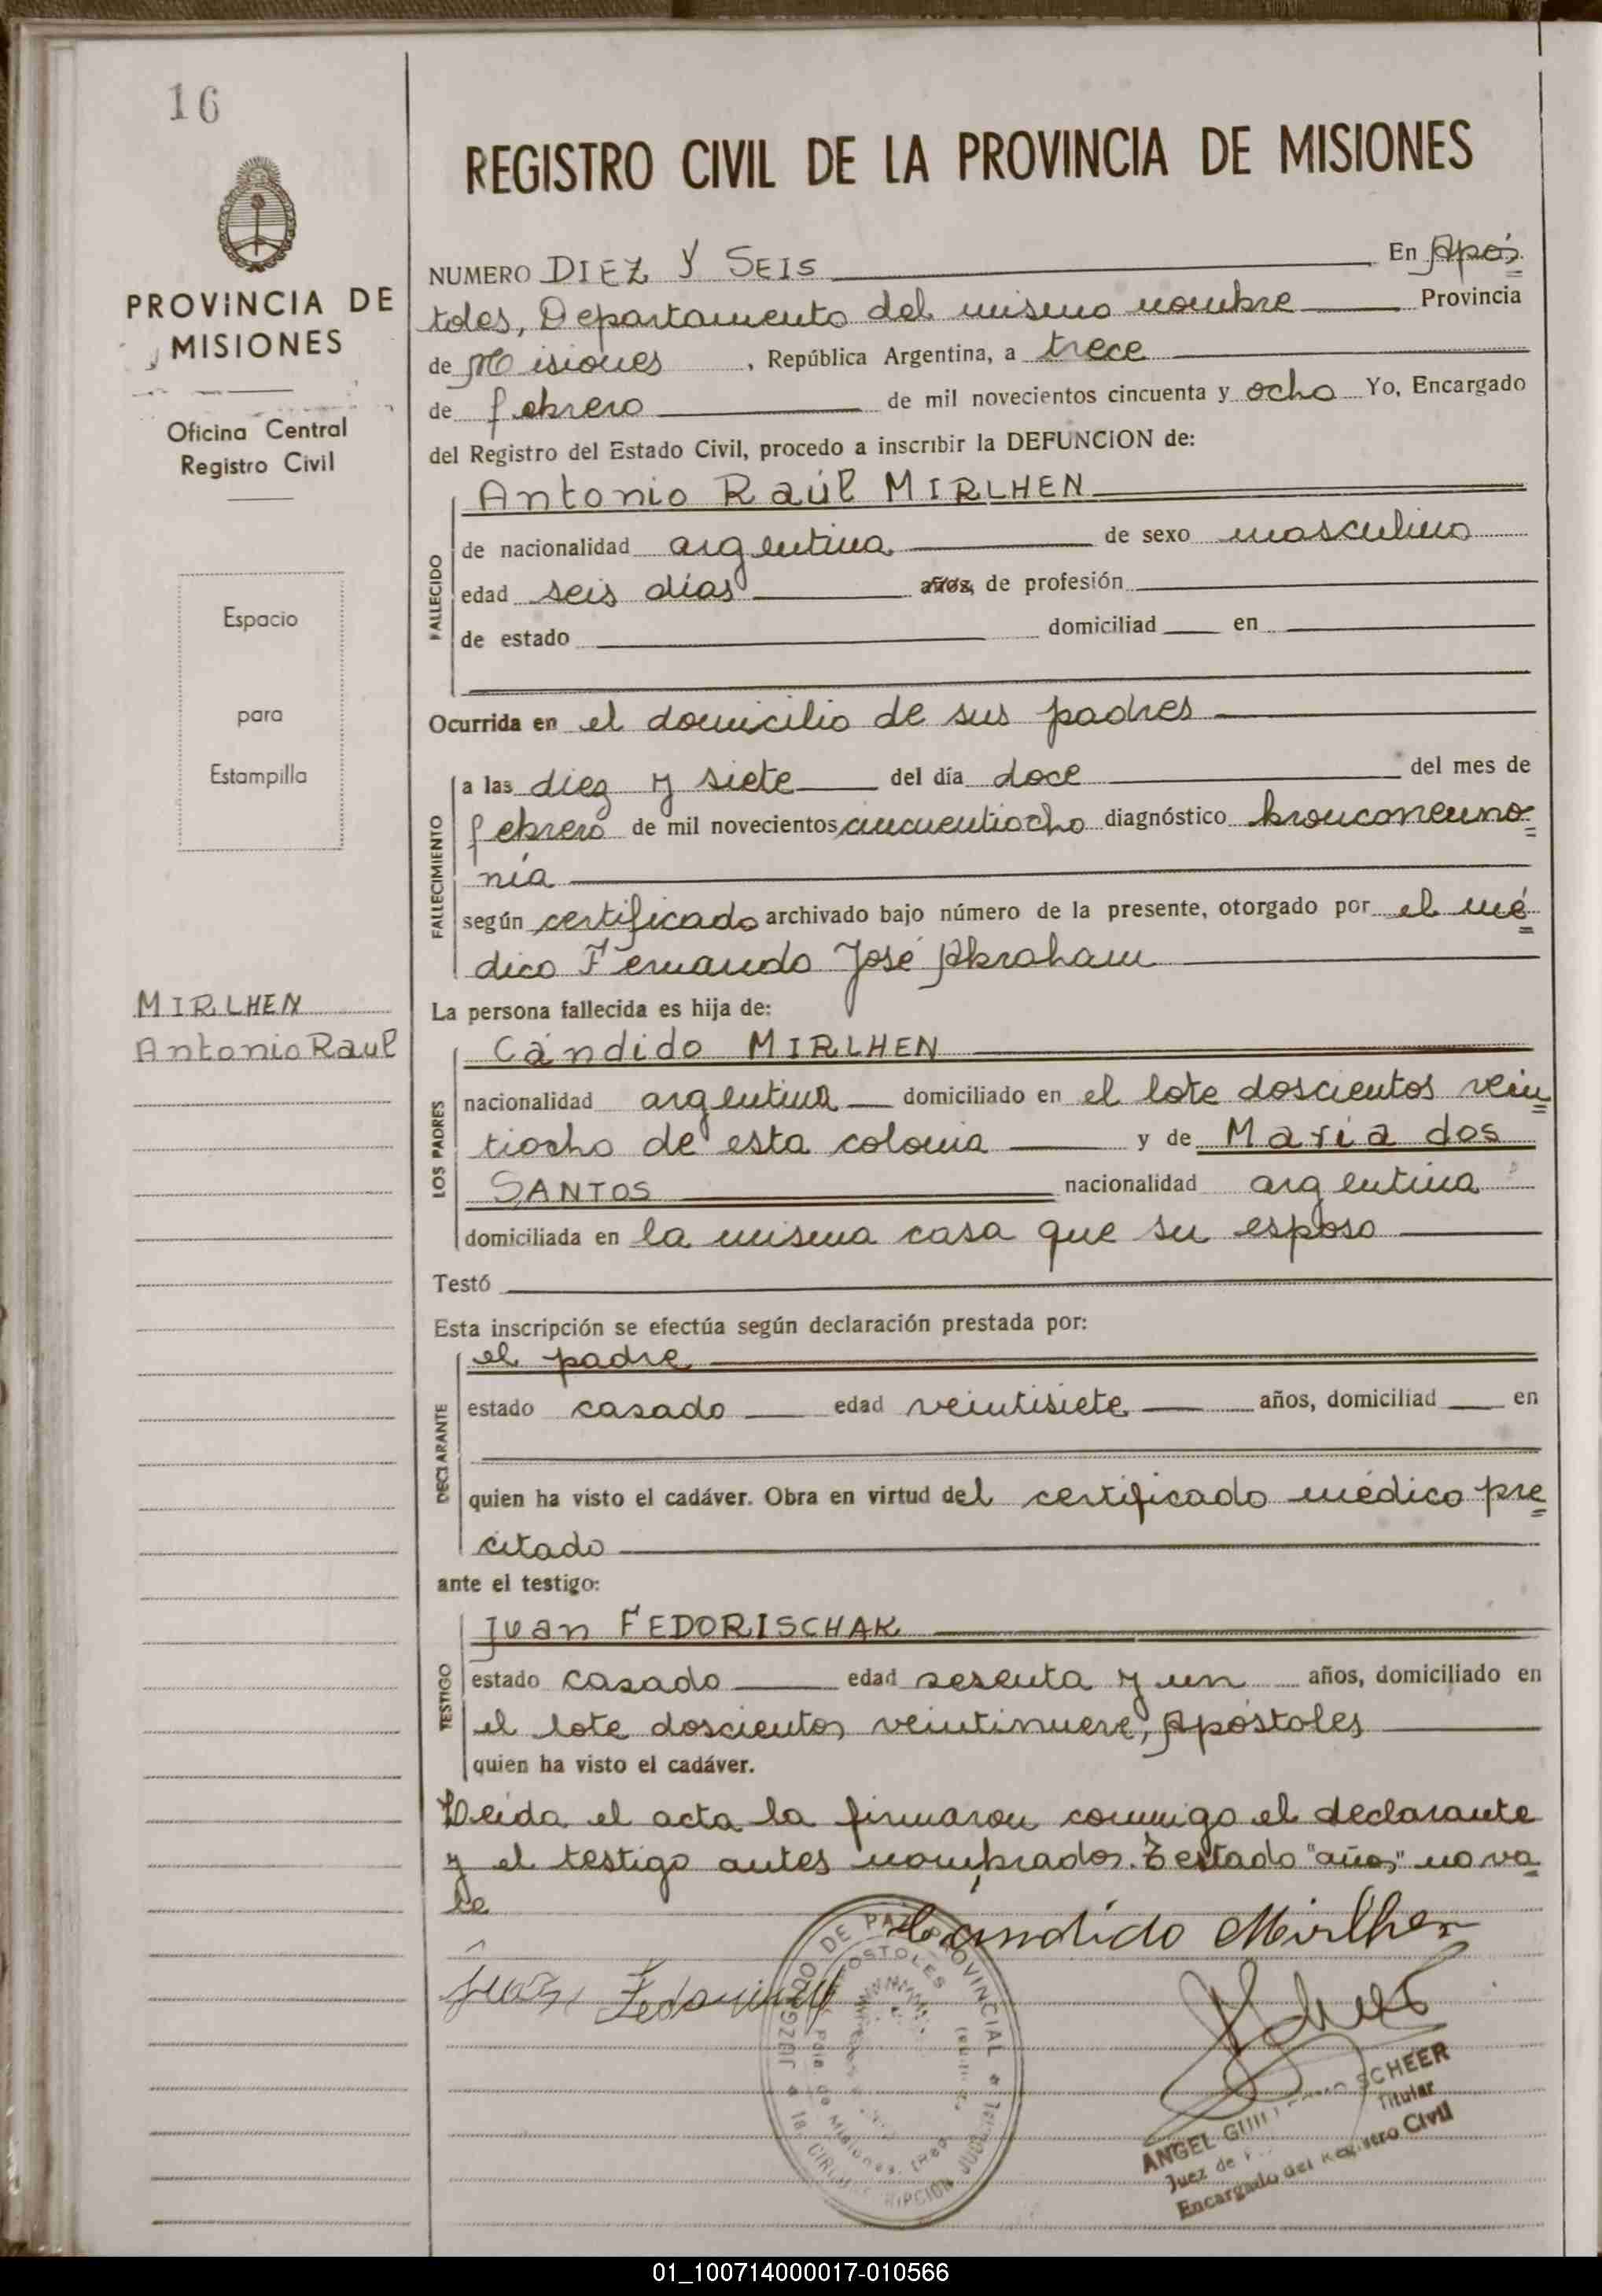 16
PROVINCIA DE
MISIONES
Oficina Central
Registro Civil
Espacio
para
Estampilla
MIRLHEN
Antonio Raul
REGISTRO CIVIL DE LA PROVINCIA DE MISIONES
NUMERO DIEZ Y SEIS En Após=
toles, Departamento del mismo nombre Provincia
de Misiones, República Argentina, a trece
de febrero de mil novecientos cincuenta y ocho Yo, Encargado
del Registro del Estado Civil, procedo a inscribir la DEFUNCION de:
Antonio Raúl MIRLHEN
FALLECIDO
de nacionalidad argentina de sexo masculino
edad seis días años, de profesión
de estado domiciliad en
Ocurrida en el domicilio de sus padres
FALLECIMIENTO
a las diez y siete del día doce del mes de
febrero de mil novecientos cincuentiocho diagnóstico bronconeumo=
nía
según certificado archivado bajo número de la presente, otorgado por el mé=
dico Fernando José Abraham
La persona fallecida es hija de:
LOS PADRES
Cándido MIRLHEN
nacionalidad argentina domiciliado en el lote doscientos vein=
tiocho de esta colonia y de María dos
SANTOS nacionalidad argentina
domiciliada en la misma casa que su esposo
Testó
Esta inscripción se efectúa según declaración prestada por:
DECLARANTE
el padre
estado casado edad veintisiete años, domiciliad en
quien ha visto el cadáver. Obra en virtud del certificado médico pre=
citado
ante el testigo:
TESTIGO
Juan FEDORISCHAK
estado casado edad sesenta y un años, domiciliado en
el lote doscientos veintinueve, Apóstoles
quien ha visto el cadáver.
Leída el acta la firmaron conmigo el declarante
y el testigo antes nombrados. Testado "años," no va=
le
Candido Mirlhen
Juan
JUZGADO DE PAZ PROVINCIAL
APOSTOLES
Pcia. de Misiones. (Rep.
1a. CIRCUNSCRIPCION JUDICIAL
ANGEL SCHEER
Juez de Titular
Encargado del Registro Civil
01_100714000017-010566